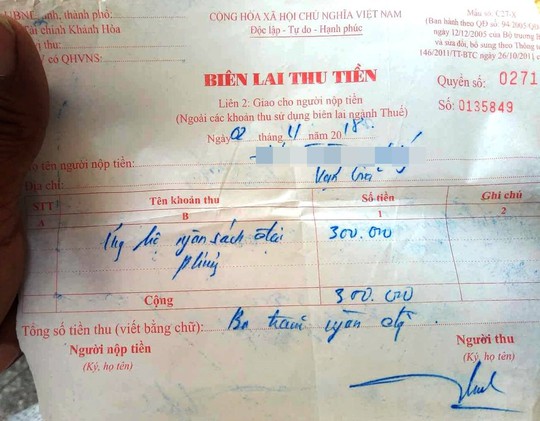 UBND, tỉnh, thành phố:
Tài chính Khánh Hòa
CỘNG HÒA XÃ HỘI CHỦ NGHĨA VIỆT NAM
Độc lập - Tự do - Hạnh phúc
Mẫu số: C27-X
(Ban hành theo QĐ số: 94-2005-QĐ
ngày 12/12/2005 của Bộ trưởng B
và sửa đổi, bổ sung theo Thông tư
146/2011/TT-BTC ngày 26/10/2011 c
thu:
có QHVNS:
BIÊN LAI THU TIỀN
Quyển số: 0271
Liên 2: Giao cho người nộp tiền
Số: 0135849
(Ngoài các khoản thu sử dụng biên lai ngành Thuế)
Ngày 02 tháng 4 năm 2018
ọ tên người nộp tiền:
Địa chỉ:
STT Tên khoản thu Số tiền Ghi chú
A B 1 2
Ủng hộ ngân sách địa 300.000
phương
Cộng 300.000
Tổng số tiền thu (viết bằng chữ): Ba trăm ngàn đồng
Người nộp tiền Người thu
(Ký, họ tên) (Ký, họ tên)